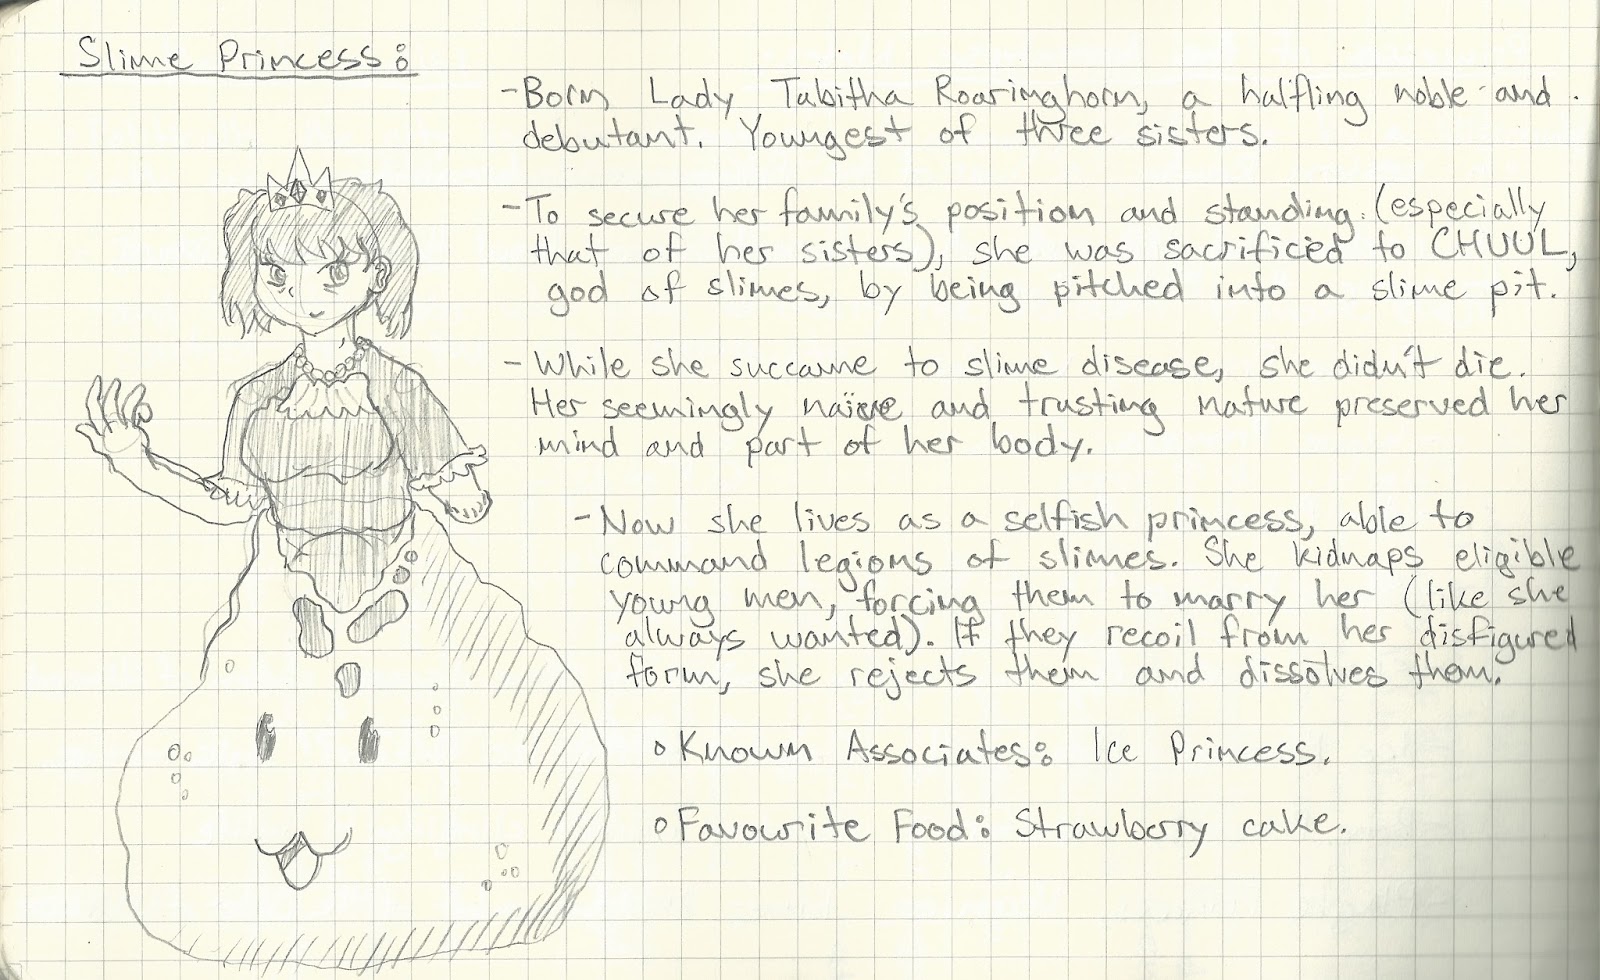 Slime Princess:
- Born Lady Tabitha Roaringhorn, a halfling noble and
debutant. Youngest of three sisters.
- To secure her family's position and standing (especially
that of her sisters), she was sacrificed to CHUUL,
god of slimes, by being pitched into a slime pit.
- While she succame to slime disease, she didn't die.
Her seemingly naïeve and trusting nature preserved her
mind and part of her body.
- Now she lives as a selfish princess, able to
command legions of slimes. She kidnaps eligible
young men, forcing them to marry her (like she
always wanted). If they recoil from her disfigured
form, she rejects them and dissolves them.
o Known Associates: Ice Princess.
o Favourite Food: Strawberry cake.